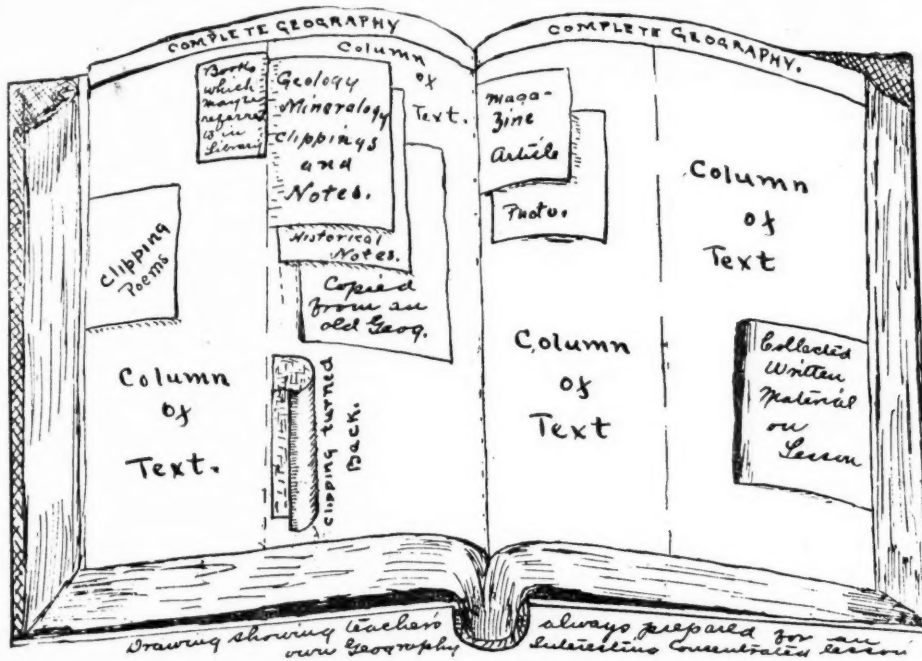 COMPLETE GEOGRAPHY
Books
which
may be
referred
to in
Library
Geology
Mineralogy
Clippings
and
Notes.
Historical
Notes.
Copied
from an
old Geog.
Column
of
Text.
Clipping
Poems
Column
of
Text.
Clipping turned
Back.
COMPLETE GEOGRAPHY.
Maga-
zine
Article
Photo.
Column
of
Text
Column
of
Text
Collected
Written
Material
on
Lesson
Drawing showing teacher's
own Geography
always prepared for an
Interesting Concentrated lesson